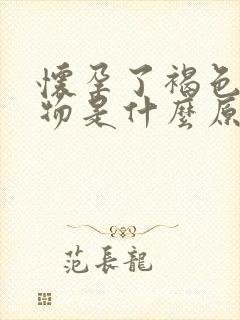 懷孕了褐色
物是什麼原
范長龍